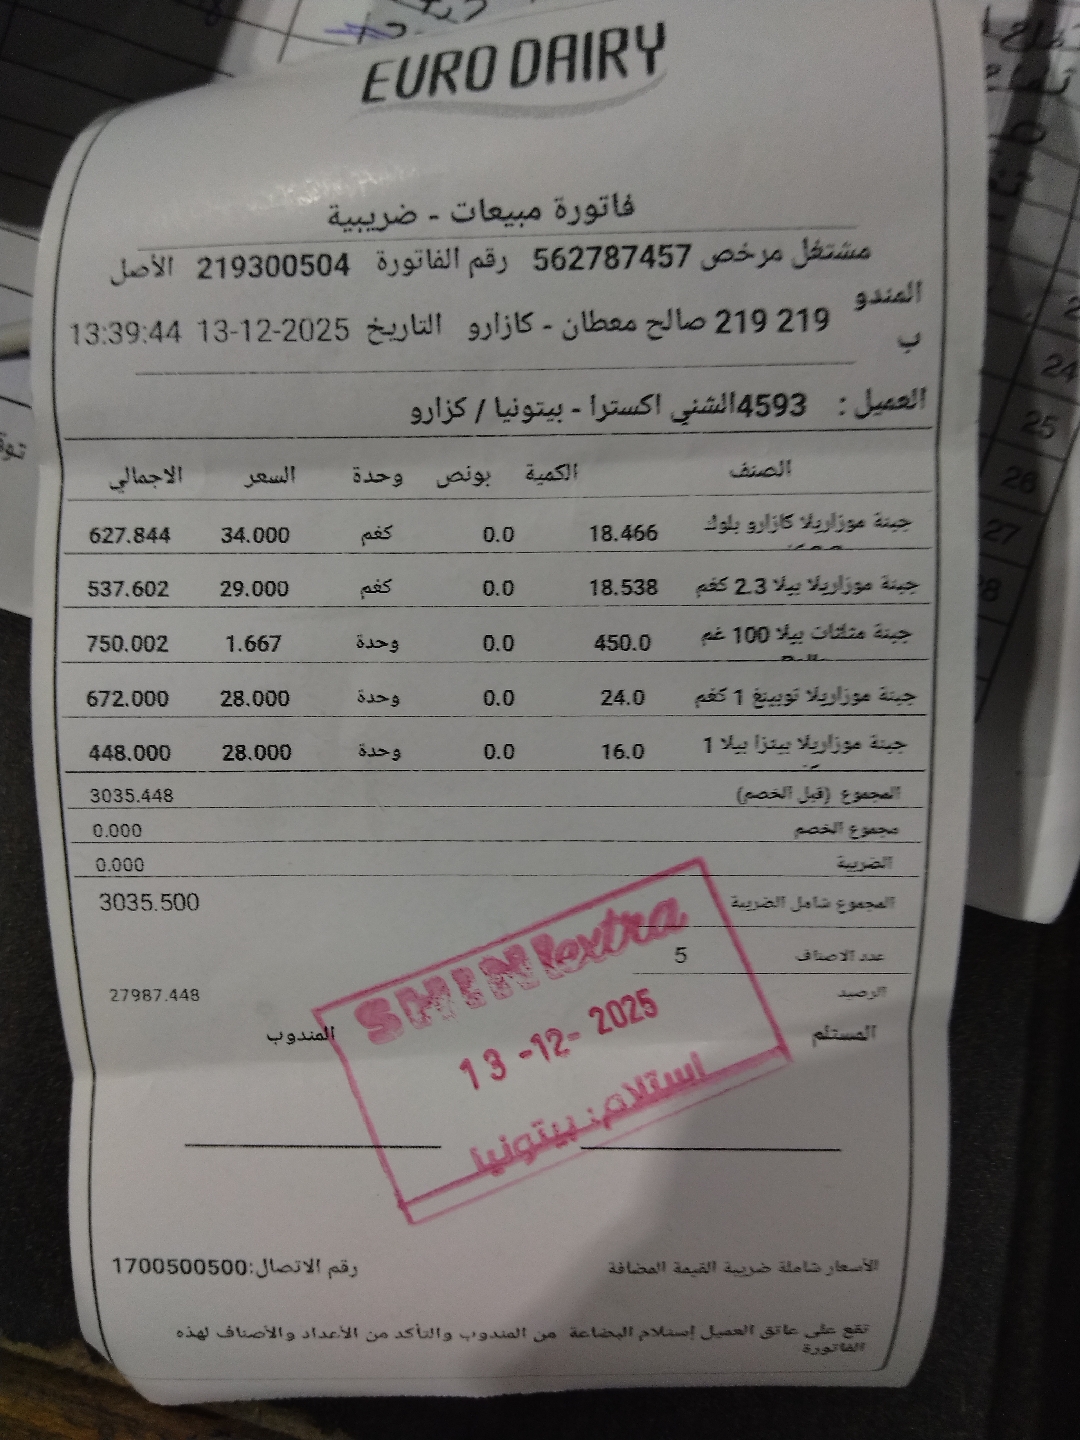 EURO DAIRY
فاتورة مبيعات - ضريبية
مشتغل مرخص 562787457 رقم الفاتورة 219300504 الأصل
المندوب 219 219 صالح معطان - كازارو التاريخ 13-12-2025 13:39:44
العميل : 4593الشني اكسترا - بيتونيا / كزارو
الصنف الكمية بونص وحدة السعر الاجمالي
جبنة موزاريلا كازارو بلوك 18.466 0.0 كغم 34.000 627.844
جبنة موزاريلا بيلا 2.3 كغم 18.538 0.0 كغم 29.000 537.602
جبنة مثلثات بيلا 100 غم 450.0 0.0 وحدة 1.667 750.002
جبنة موزاريلا توبينغ 1 كغم 24.0 0.0 وحدة 28.000 672.000
جبنة موزاريلا بيتزا بيلا 1 16.0 0.0 وحدة 28.000 448.000
المجموع (قبل الخصم) 3035.448
مجموع الخصم 0.000
الضريبة 0.000
المجموع شامل الضريبة 3035.500
عدد الاصناف 5
الرصيد 27987.448
المستلم المندوب
SHINIextra
13-12-2025
استلام بيتونيا
الأسعار شاملة ضريبة القيمة المضافة رقم الاتصال:1700500500
تقع على عاتق العميل إستلام البضاعة من المندوب والتأكد من الأعداد والأصناف لهذه
الفاتورة
24
25
26
27